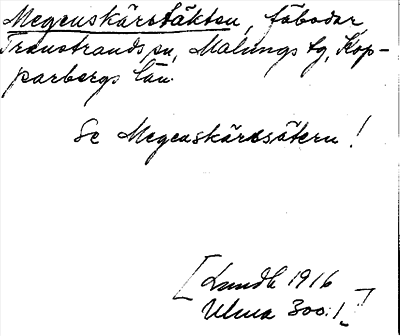 Megenskärstäkten, fäbodar,
Transtrands sn, Malungs tg, Kop-
parbergs län.
Se Megenskärssätern!
[Lundh 1916
Ulma 300:1]